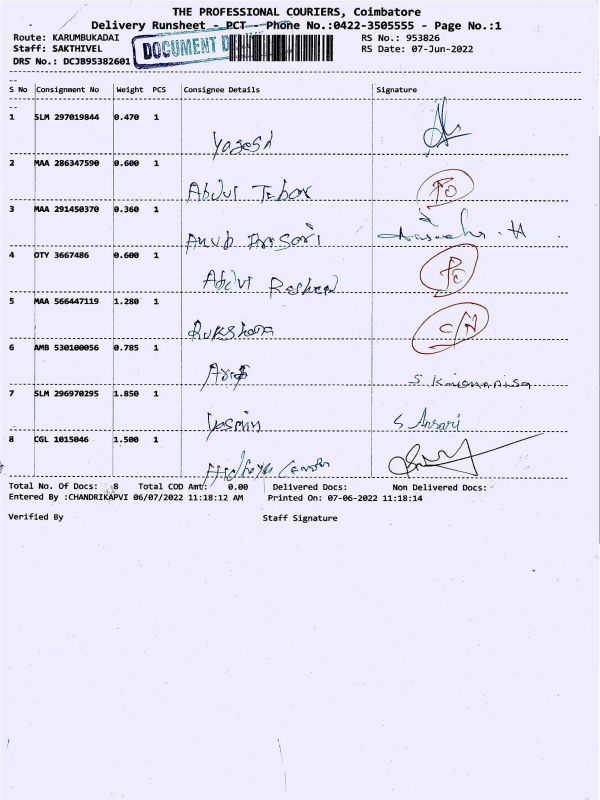 THE PROFESSIONAL COURIERS, Coimbatore
Delivery Runsheet - PCT - Phone No.:0422-3505555 - Page No.:1
Route: KARUMBUKADAI RS No.: 953826
Staff: SAKTHIVEL DOCUMENT RS Date: 07-Jun-2022
DRS No.: DCJB95382601
S No Consignment No Weight PCS Consignee Details Signature
1 SLM 297019844 0.470 1
Yagesh
2 MAA 286347590 0.600 1
Abdul
3 MAA 291450370 0.360 1
Anub
4 OTY 3667486 0.600 1
Abdul Rasheed
5 MAA 566447119 1.280 1 C/N
Rukshana
6 AMB 530100056 0.785 1
7 SLM 296970295 1.850 1
Yasmin S Ansari
8 CGL 1015046 1.500 1
Total No. Of Docs: 8 Total COD Amt: 0.00 Delivered Docs: Non Delivered Docs:
Entered By :CHANDRIKAPVI 06/07/2022 11:18:12 AM Printed On: 07-06-2022 11:18:14
Verified By Staff Signature